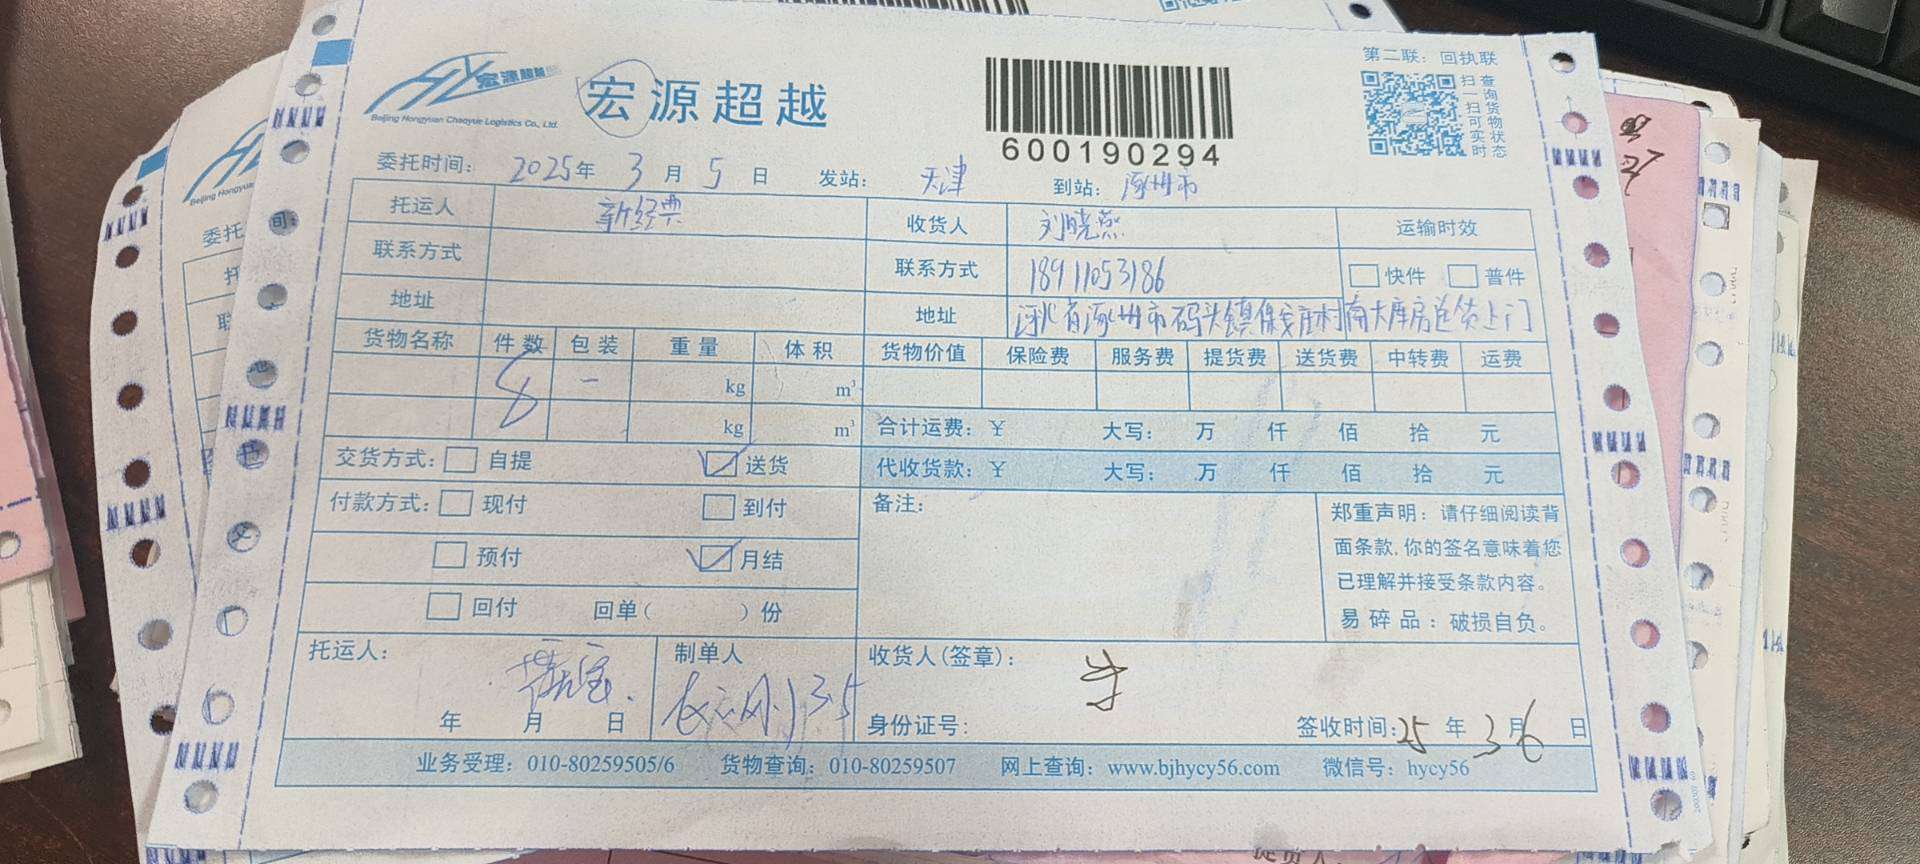 第二联：回执联
宏源超越
Beijing Hongyuan Chaoyue Logistics Co., Ltd.
宏源超越
600190294
扫一扫可实时
查询货物状态
委托时间： 2025年 3月 5日 发站： 天津 到站： 涿州市
托运人 新经典 收货人 刘晓燕 运输时效
联系方式 联系方式 18911053186 快件 普件
地址 地址 河北省涿州市码头镇保安庄村南大库房送货上门
货物名称 件数 包装 重量 体积 货物价值 保险费 服务费 提货费 送货费 中转费 运费
8 kg m³
kg m³ 合计运费：¥ 大写： 万 仟 佰 拾 元
交货方式： 自提 送货 代收货款：¥ 大写： 万 仟 佰 拾 元
付款方式： 现付 到付 备注：
预付 月结
回付 回单（ ）份
郑重声明：请仔细阅读背
面条款,你的签名意味着您
已理解并接受条款内容。
易碎品：破损自负。
托运人： 制单人 收货人(签章)：
年 月 日 身份证号： 签收时间：25年 3月6日
业务受理：010-80259505/6 货物查询：010-80259507 网上查询：www.bjhycy56.com 微信号：hycy56